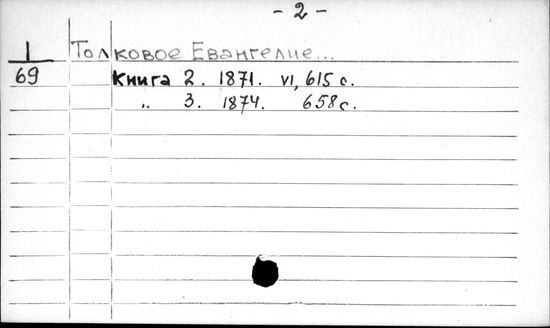 - 2 -
I Толковое Евангелие...
69 Книга 2. 1871. VI, 615 с.
„ 3. 1874. 658 с.